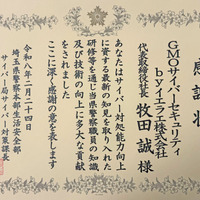 感謝状
GMOサイバーセキュリティ
byイエラエ株式会社
代表取締役社長
牧田誠様
あなたはサイバー対処能力向上
に資する最新の知見を取り入れた
研修等を通じ当県警察職員の知識
及び技術の向上に多大な貢献
をされました
ここに深く感謝の意を表します
令和八年二月二十四日
埼玉県警察本部生活安全部
サイバー局サイバー対策課長